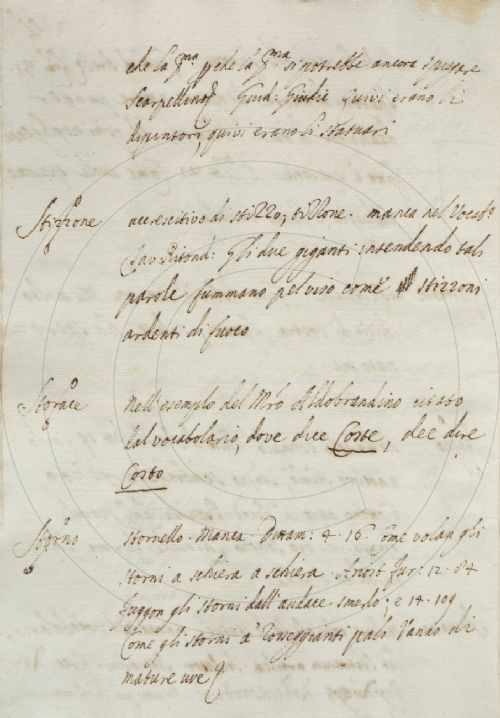 che la p.ma, che la 3.a si potrebbe ancora spiegare
Scarpellino. Guid: Giudic Quivi erano li
dipintori, quivi erano li statuari
Stizzone accrescitivo di stizzo, tizzone. manca nel Vocab.o
Tav. Ritond: Gli due giganti intendendo tali
parole fummano pel viso come stizzoni
ardenti di fuoco
Storace Nell'esempio del Mro Aldobrandino citato
dal vocabolario, dove dice Coste, dee dire
Costo
Storno stornello. Manca. Dittam: 4. 16. Come volan gli
storni a schiera a schiera. Ariost. Fur: 12. 84
Fuggon gli storni dall'audace smerlo; e 14. 109
Come gli storni a' rosseggianti pali Vanno di
mature uve